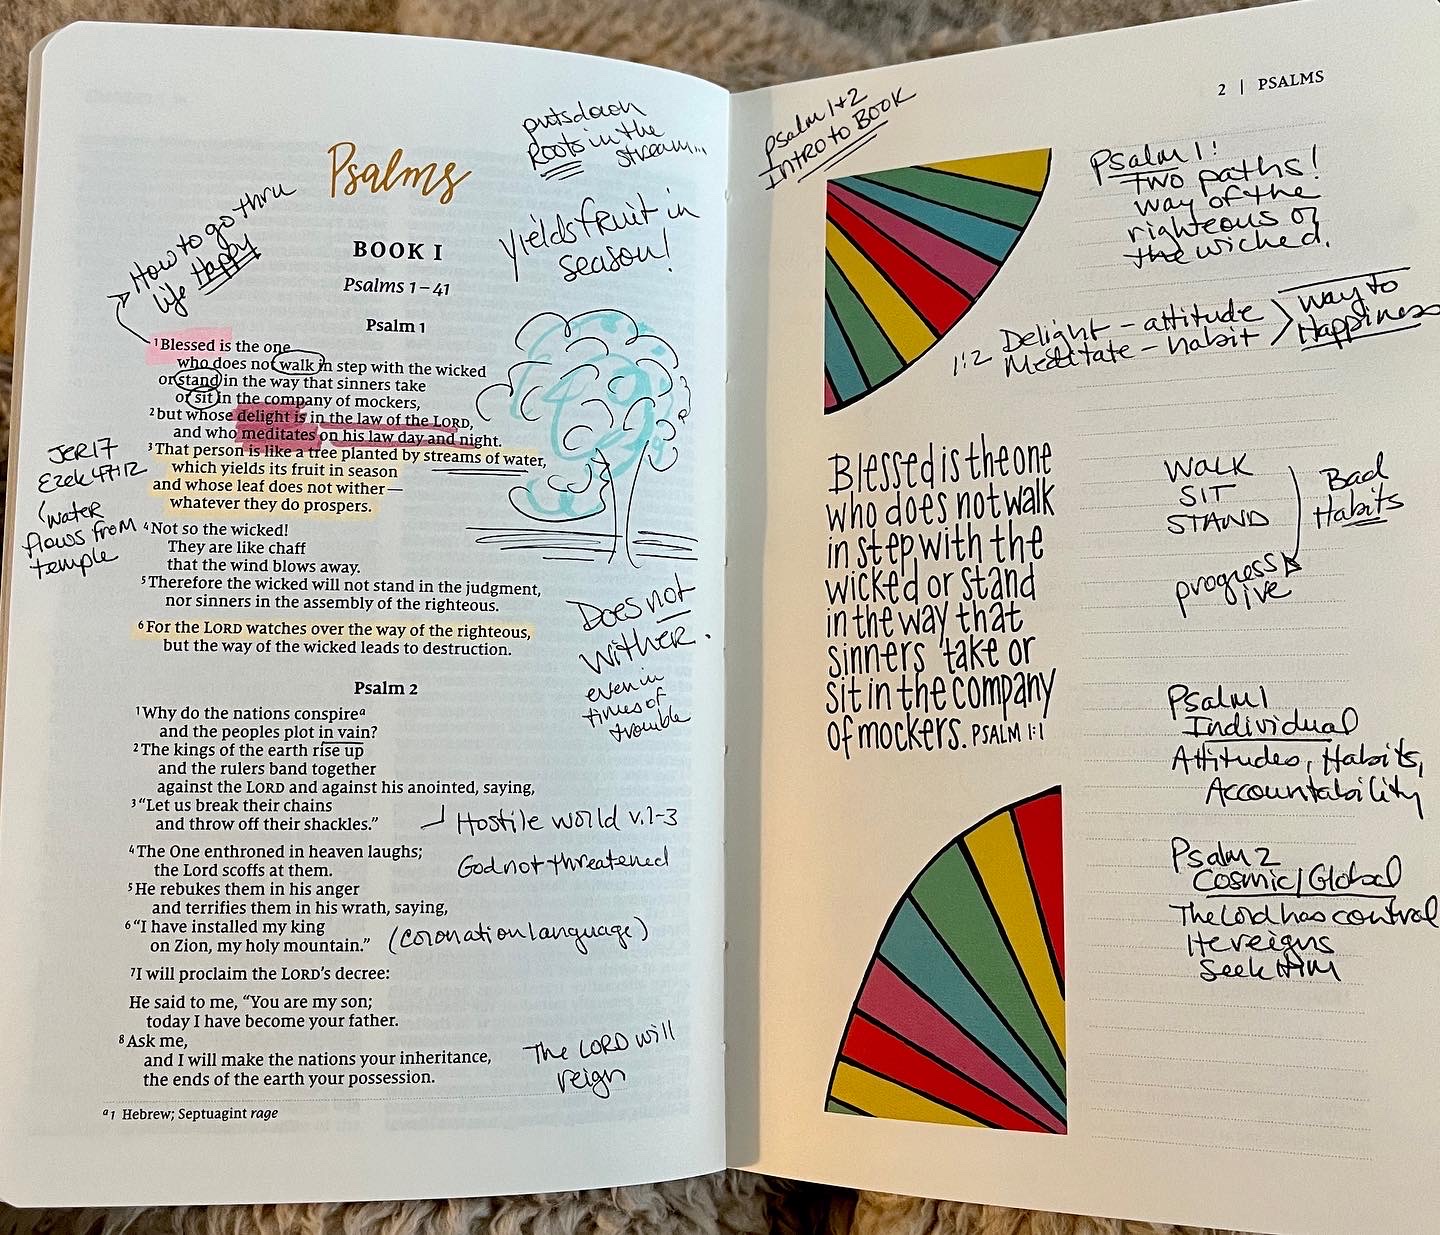 Psalms
BOOK I
Psalms 1–41
How to go thru
life Happy
puts down
Roots in the
stream...
yields fruit in
season!
Psalm 1
1Blessed is the one
who does not walk in step with the wicked
or stand in the way that sinners take
or sit in the company of mockers,
2but whose delight is in the law of the LORD,
and who meditates on his law day and night.
3That person is like a tree planted by streams of water,
which yields its fruit in season
and whose leaf does not wither—
whatever they do prospers.
4Not so the wicked!
They are like chaff
that the wind blows away.
5Therefore the wicked will not stand in the judgment,
nor sinners in the assembly of the righteous.
6For the LORD watches over the way of the righteous,
but the way of the wicked leads to destruction.
JER 17
Ezek 47:12
water
flows from
temple
Does not
wither.
even in
times of
trouble
Psalm 2
1Why do the nations conspirea
and the peoples plot in vain?
2The kings of the earth rise up
and the rulers band together
against the LORD and against his anointed, saying,
3“Let us break their chains
and throw off their shackles.”
Hostile world v.1-3
4The One enthroned in heaven laughs;
the Lord scoffs at them.
God not threatened
5He rebukes them in his anger
and terrifies them in his wrath, saying,
6“I have installed my king
on Zion, my holy mountain.”
(coronation language)
7I will proclaim the LORD’s decree:
He said to me, “You are my son;
today I have become your father.
8Ask me,
and I will make the nations your inheritance,
the ends of the earth your possession.
The LORD will
reign
a1 Hebrew; Septuagint rage
2 | PSALMS
Psalm 1+2
INTRO to BOOK
Psalm 1:
Two paths!
way of the
righteous or
the wicked.
1:2 Delight - attitude
Meditate - habit
Way to
Happiness
Blessed is the one
who does not walk
in step with the
wicked or stand
in the way that
sinners take or
sit in the company
of mockers. PSALM 1:1
WALK
SIT
STAND
Bad
Habits
progress
ive
Psalm 1
Individual
Attitudes, Habits,
Accountability
Psalm 2
Cosmic/Global
The Lord has control
He reigns
Seek Him